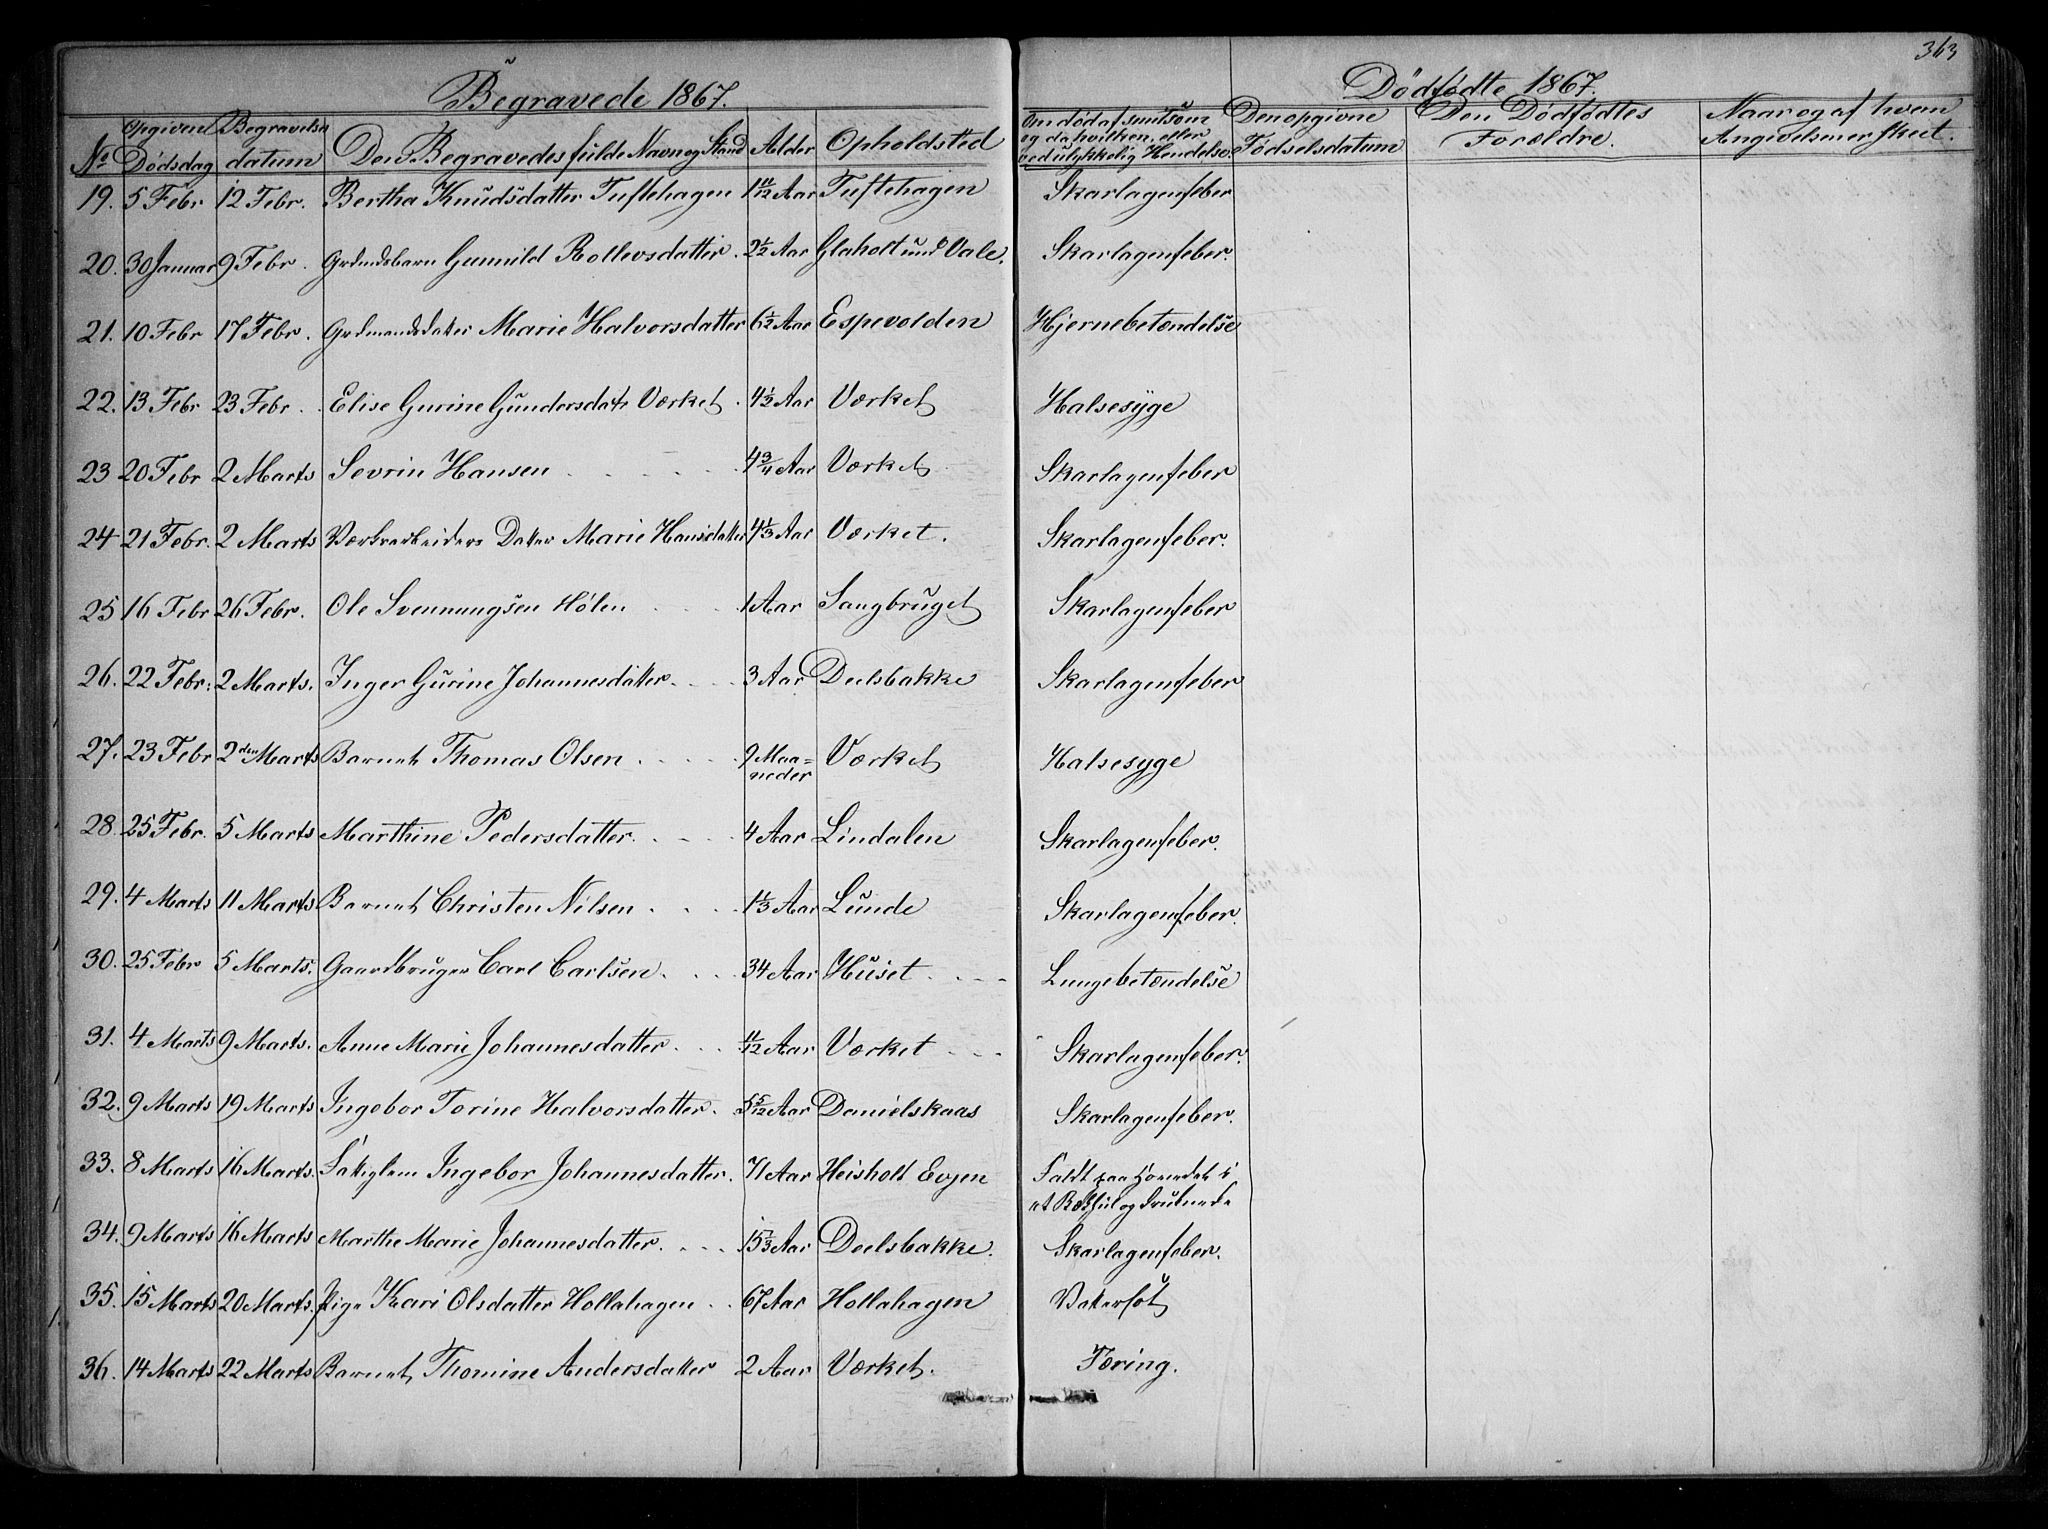 363
Begravede 1867.
Dödfödte 1867.
No
Opgiven Dödsdag
Begravelsedatum
Den Begravedes fulde Navn og Stand
Alder
Opholdsted
Om död af smitsom
og da hvilken, eller
ved ulykkelig Hendelse.
Den opgivne
Födselsdatum
Den Dödfödtes
Forældre.
Naar og af hvem
Angivelsen er skeet.
19. 5 Febr 12 Febr. Bertha Knudsdatter Tuftehagen 1 11/12 Aar Tuftehagen Skarlagensfeber
20. 30 Januar 9 Febr. Grdmdsbarn Gunnild Rollevsdatter. 2 1/2 Aar Glaholt und Vale. Skarlagensfeber.
21. 10 Febr 17 Febr. Grdmandsdatter Marie Halvorsdatter 6 1/2 Aar Espevolden Hjernebetændelse
22. 13 Febr 23 Febr. Elise Gurine Gundersdatr Værket. 4 1/2 Aar Værket Halsesyge
23 20 Febr 2 Marts Sevrin Hansen 4 3/4 Aar Værket Skarlagensfeber
24 21 Febr. 2 Marts Værksarbeiders Datter Marie Hansdatter 4 1/3 Aar Værket. Skarlagensfeber.
25 16 Febr 26 Febr. Ole Svennungsen Hølen 1 Aar Saugbruget Skarlagensfeber
26. 22 Febr. 2 Marts. Inger Gurine Johannesdatter. 3 Aar Deelsbakke Skarlagensfeber
27. 23 Febr 2den Marts Barnet Thomas Olsen 9 Maaneder Værket Halsesyge
28. 25 Febr. 5 Marts Marthine Pedersdatter. 4 Aar Lindalen Skarlagensfeber.
29. 4 Marts 11 Marts Barnet Christen Nilsen. 1 1/3 Aar Lunde Skarlagensfeber.
30. 25 Febr 5 Marts. Gaardbruger Carl Carlsen. 34 Aar Huset Lungebetændelse
31. 4 Marts 9 Marts. Anne Marie Johannesdatter. 11/12 Aar Værket Skarlagensfeber.
32. 9 Marts 19 Marts Ingebor Torine Halvorsdatter. 5 5/12 Aar Danielskaas Skarlagensfeber.
33. 8 Marts 16 Marts. Ingebor Johannesdatter. 71 Aar Heisholt Evjen Faldt paa Hovedet i
et og druknede
34. 9 Marts 16 Marts Marthe Marie Johannesdatter. Aar Deelsbakke. Skarlagensfeber.
35. 15 Marts 20 Marts. Pige Kari Olsdatter Hollahagen 67 Aar Hollahagen Vatersot
36. 14 Marts 22 Marts Barnet Thomine Andersdatter 2 Aar Værket. Tæring.